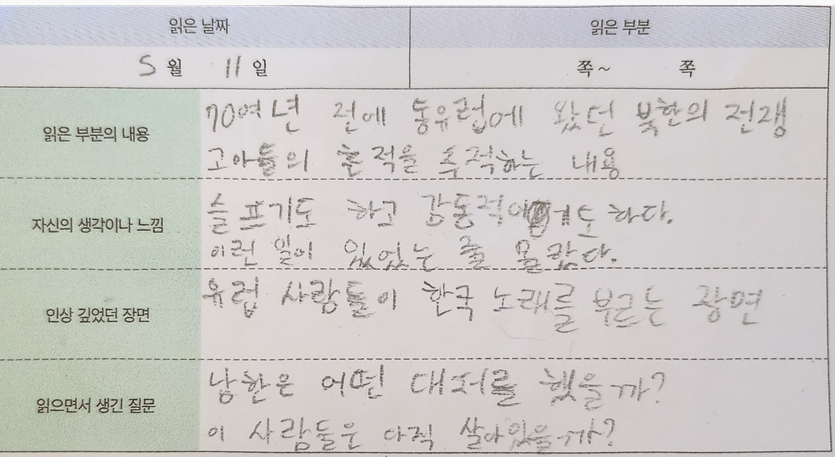 읽은 날짜 읽은 부분
5월 11일 쪽~ 쪽
읽은 부분의 내용
70여년 전에 동유럽에 왔던 북한의 전쟁
고아들의 흔적을 추적하는 내용
자신의 생각이나 느낌
슬프기도 하고 감동적이기도 하다.
이런 일이 있었는 줄 몰랐다.
인상 깊었던 장면
유럽 사람들이 한국 노래를 부르는 장면
읽으면서 생긴 질문
남한은 어떤 대처를 했을까?
이 사람들은 아직 살아있을까?